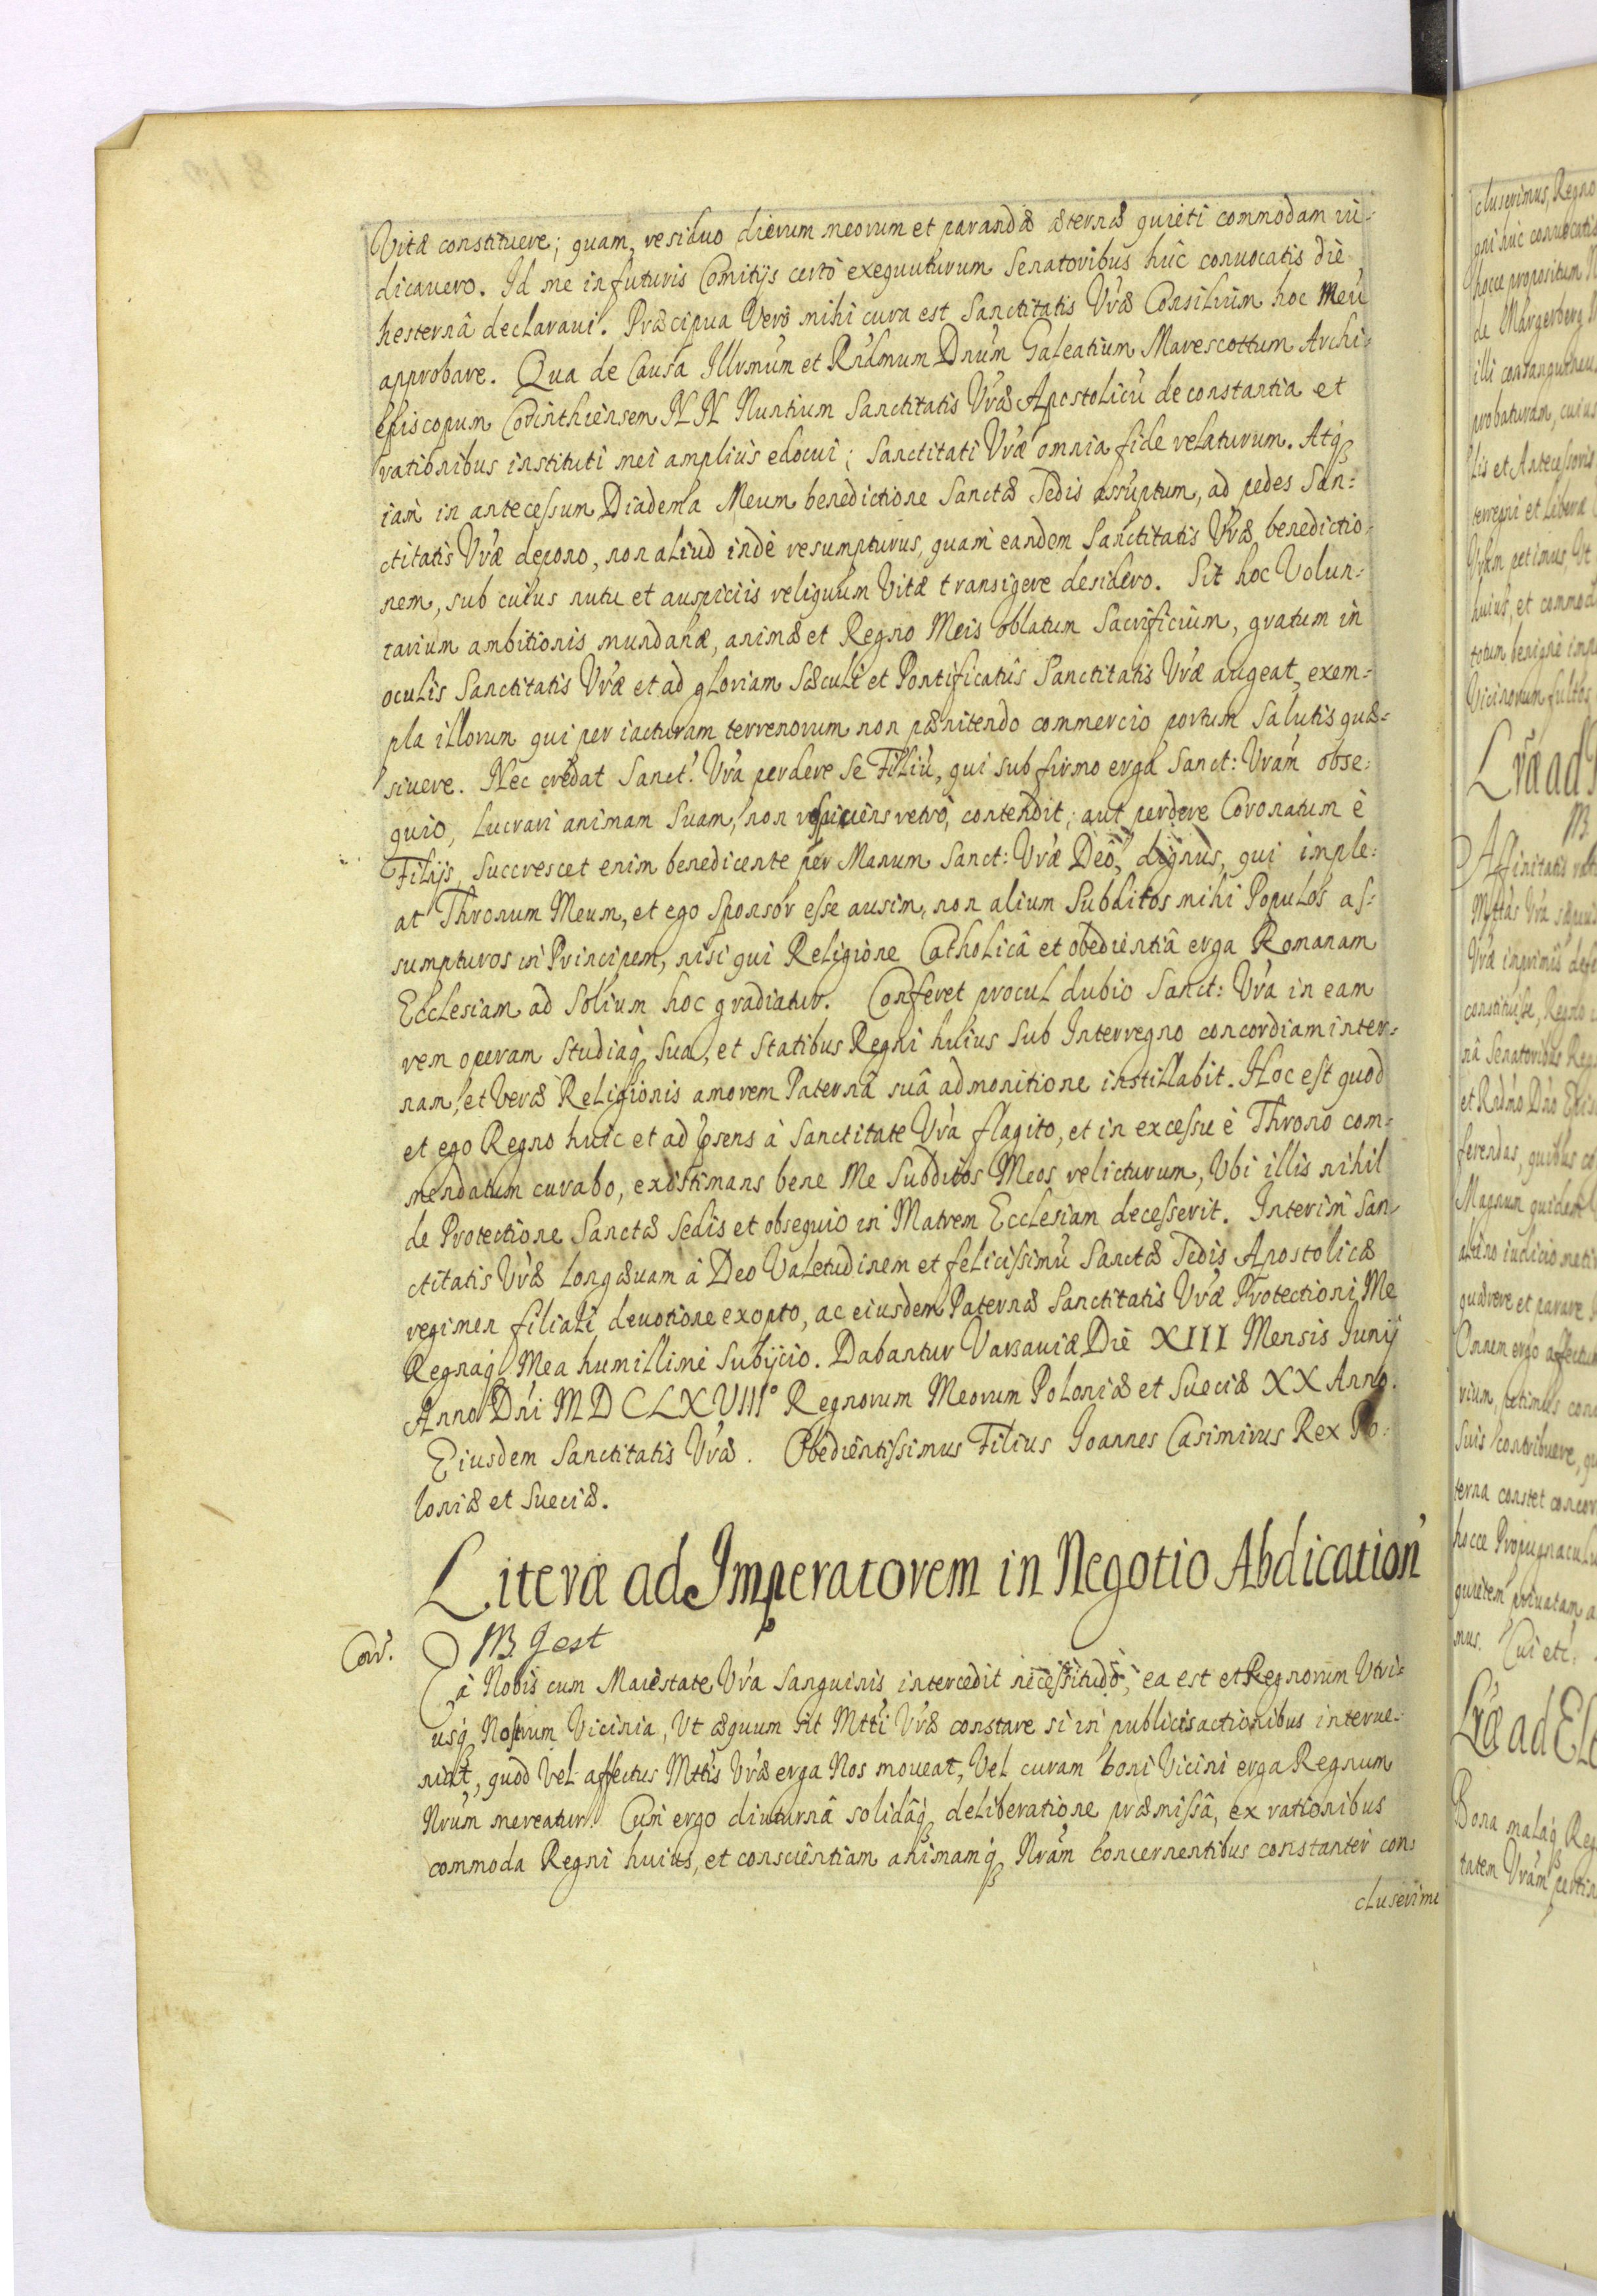 Vitæ constituere; quam, residuo dierum meorum et parandæ æternæ quieti commodam iu-
dicauero. Id me in futuris Comitijs certò exequuturum Senatoribus hùc conuocatis die
hesternâ declaraui. Præcipua Verò mihi cura est Sanctitatis Vræ Consilium hoc Meũ
approbare. Qua de Causa Illrmũm et Rndmum Dnũm Galeatium Marescottum Archi-
episcopum Corinthiensem NN Nuntium Sanctitatis Vræ Apostolicũ de constantia et
rationibus instituti mei amplius edocui; Sanctitati Vræ omnia fide relaturum. Atq́
iam in antecessum Diadema Meum benedictione Sanctæ Sedis assumptum, ad pedes San:
ctitatis Vræ depono, non aliud indè resumpturus, quam eandem Sanctitatis Vræ benedictio-
nem, sub cuius nutu et auspiciis reliquum Vitæ transigere desidero. Sit hoc Volun-
tarium ambitionis mundanæ, animæ et Regno Meis oblatum Sacrificium, gratum in
oculis Sanctitatis Vræ et ad gloriam Sæculi et Pontificatûs Sanctitatis Vræ augeat, exem-
pla illorum qui per iacturam terrenorum non pænitendo commercio portum Salutis quæ-
siuere. Nec credat Sanct: Vra perdere Se Filiũ, qui sub firmo erga Sanct: Vram obse:
quio, lucrari animam Suam, non respiciens retrò, contendit; aut perdere Coronatum è
Filijs, Succrescet enim benedicente per Manum Sanct: Vræ Deo, dignus, qui imple:
at Thronum Meum, et ego Sponsor esse ausim, non alium Subditos mihi Populos as-
sumpturos in Principem, nisi qui Religione Catholicâ et obedientiâ erga Romanam
Ecclesiam ad Solium hoc gradiatur. Conferet procul dubio Sanct: Vra in eam
rem operam Studiaq́ Sua, et Statibus Regni huius Sub Interregno concordiam inter-
nam, et Veræ Religionis amorem Paternâ suâ admonitione instillabit. Hoc est quod
et ego Regno huic et ad p̃sens à Sanctitate Vra flagito, et in excessu è Throno com-
mendatum curabo, existimans bene Me Subditos Meos relicturum, Vbi illis nihil
de Protectione Sanctæ Sedis et obsequio in Matrem Ecclesiam decesserit. Interim San
ctitatis Vræ longæuam à Deo Valetudinem et felicissimũ Sanctæ Sedis Apostolicæ
regimen filiali deuotione exopto, ac eiusdem Paternæ Sanctitatis Vræ Protectioni Me
Regnaq́ Mea humillimè Subijcio. Dabantur Varsauiæ Die XIII Mensis Junij
Anno Dni MDCLXVIII° Regnorum Meorum Poloniæ et Sueciæ XX Anno.
Eiusdem Sanctitatis Vræ. Obedientissimus Filius Joannes Casimirus Rex Po:
loniæ et Sueciæ.
Literæ ad Imperatorem in Negotio Abdication̉
Corr. NB Jest
Ea Nobis cum Maiestate Vra Sanguinis intercedit necessitudo, ea est et Regnorum Vtri-
usq́ Nostrum Vicinia, Vt æquum sit Mtti Vræ constare si in publicis actionibus interue-
niat, quod Vel affectus Mttis Vræ erga Nos moueat, Vel curam boni Vicini erga Regnum
Nrum mereatur. Cum ergo diuturnâ solidâq́ deliberatione præmissâ, ex rationibus
commoda Regni huius, et conscientiam animamq́ Nram concernentibus constanter con:
cluserimu